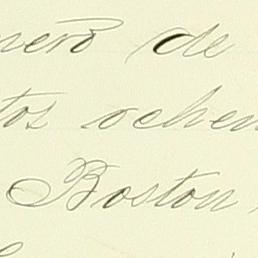 nero de
tos ochen
Boston